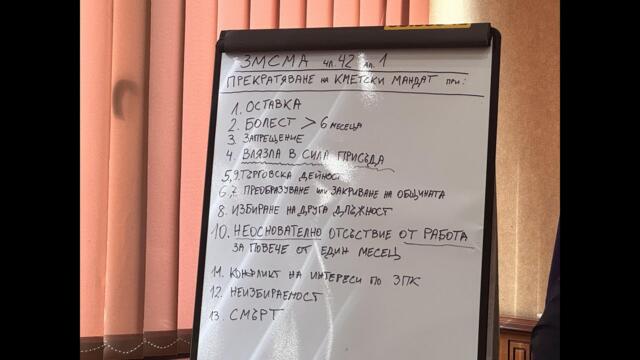 ЗМСМА чл. 42 ал. 1
ПРЕКРАТЯВАНЕ НА КМЕТСКИ МАНДАТ ПРИ:
1. ОСТАВКА
2. БОЛЕСТ > 6 МЕСЕЦА
3. ЗАПРЕЩЕНИЕ
4. ВЛЯЗЛА В СИЛА ПРИСЪДА
5,9. ТЪРГОВСКА ДЕЙНОСТ
6,7. ПРЕОБРАЗУВАНЕ ИЛИ ЗАКРИВАНЕ НА ОБЩИНАТА
8. ИЗБИРАНЕ НА ДРУГА ДЛЪЖНОСТ
10. НЕОСНОВАТЕЛНО ОТСЪСТВИЕ ОТ РАБОТА
ЗА ПОВЕЧЕ ОТ ЕДИН МЕСЕЦ
11. КОНФЛИКТ НА ИНТЕРЕСИ ПО ЗПК
12. НЕИЗБИРАЕМОСТ
13. СМЪРТ